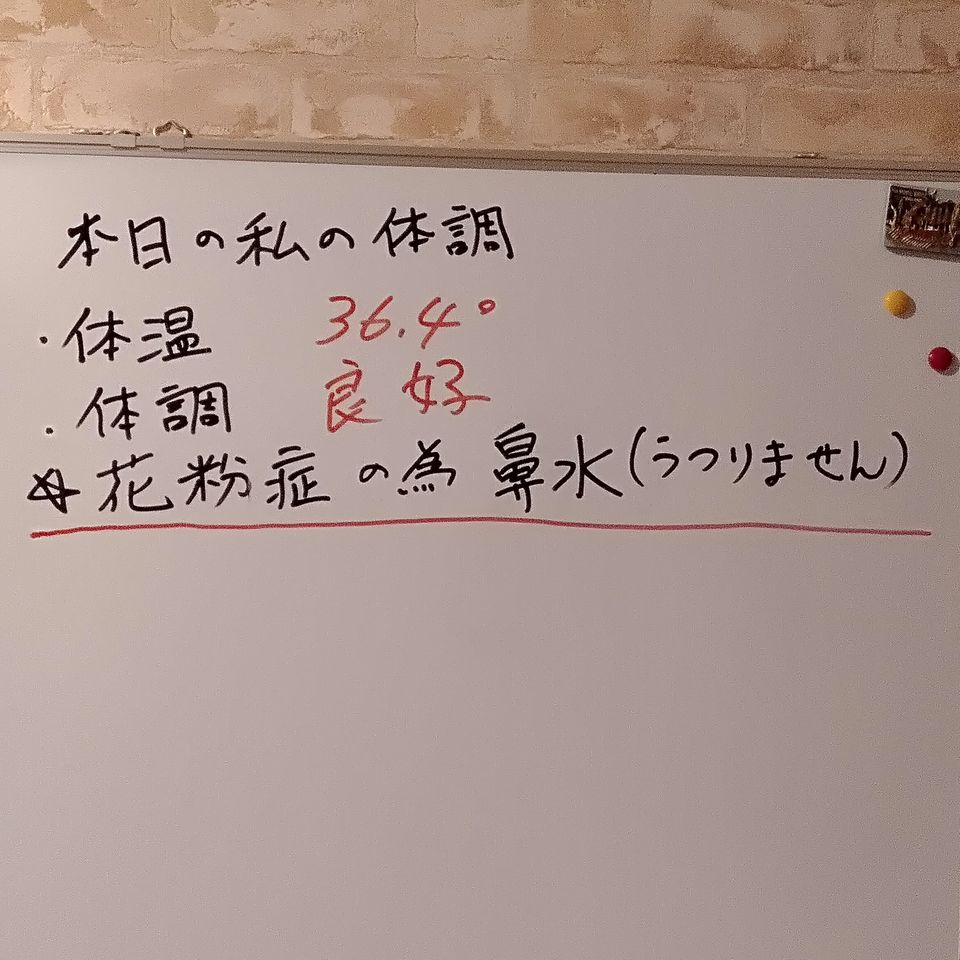 本日の私の体調
・体温 36.4°
・体調 良好
☆花粉症の為 鼻水(うつりません)